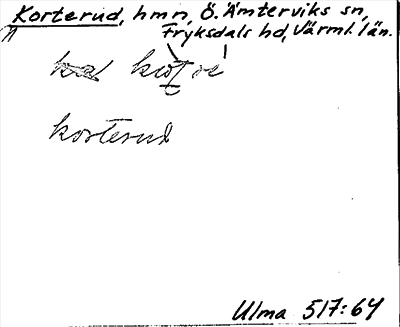 Korterud, hmn, Ö. Ämterviks sn,
Fryksdals hd, Värml. län.
korterud
Ulma 517:64